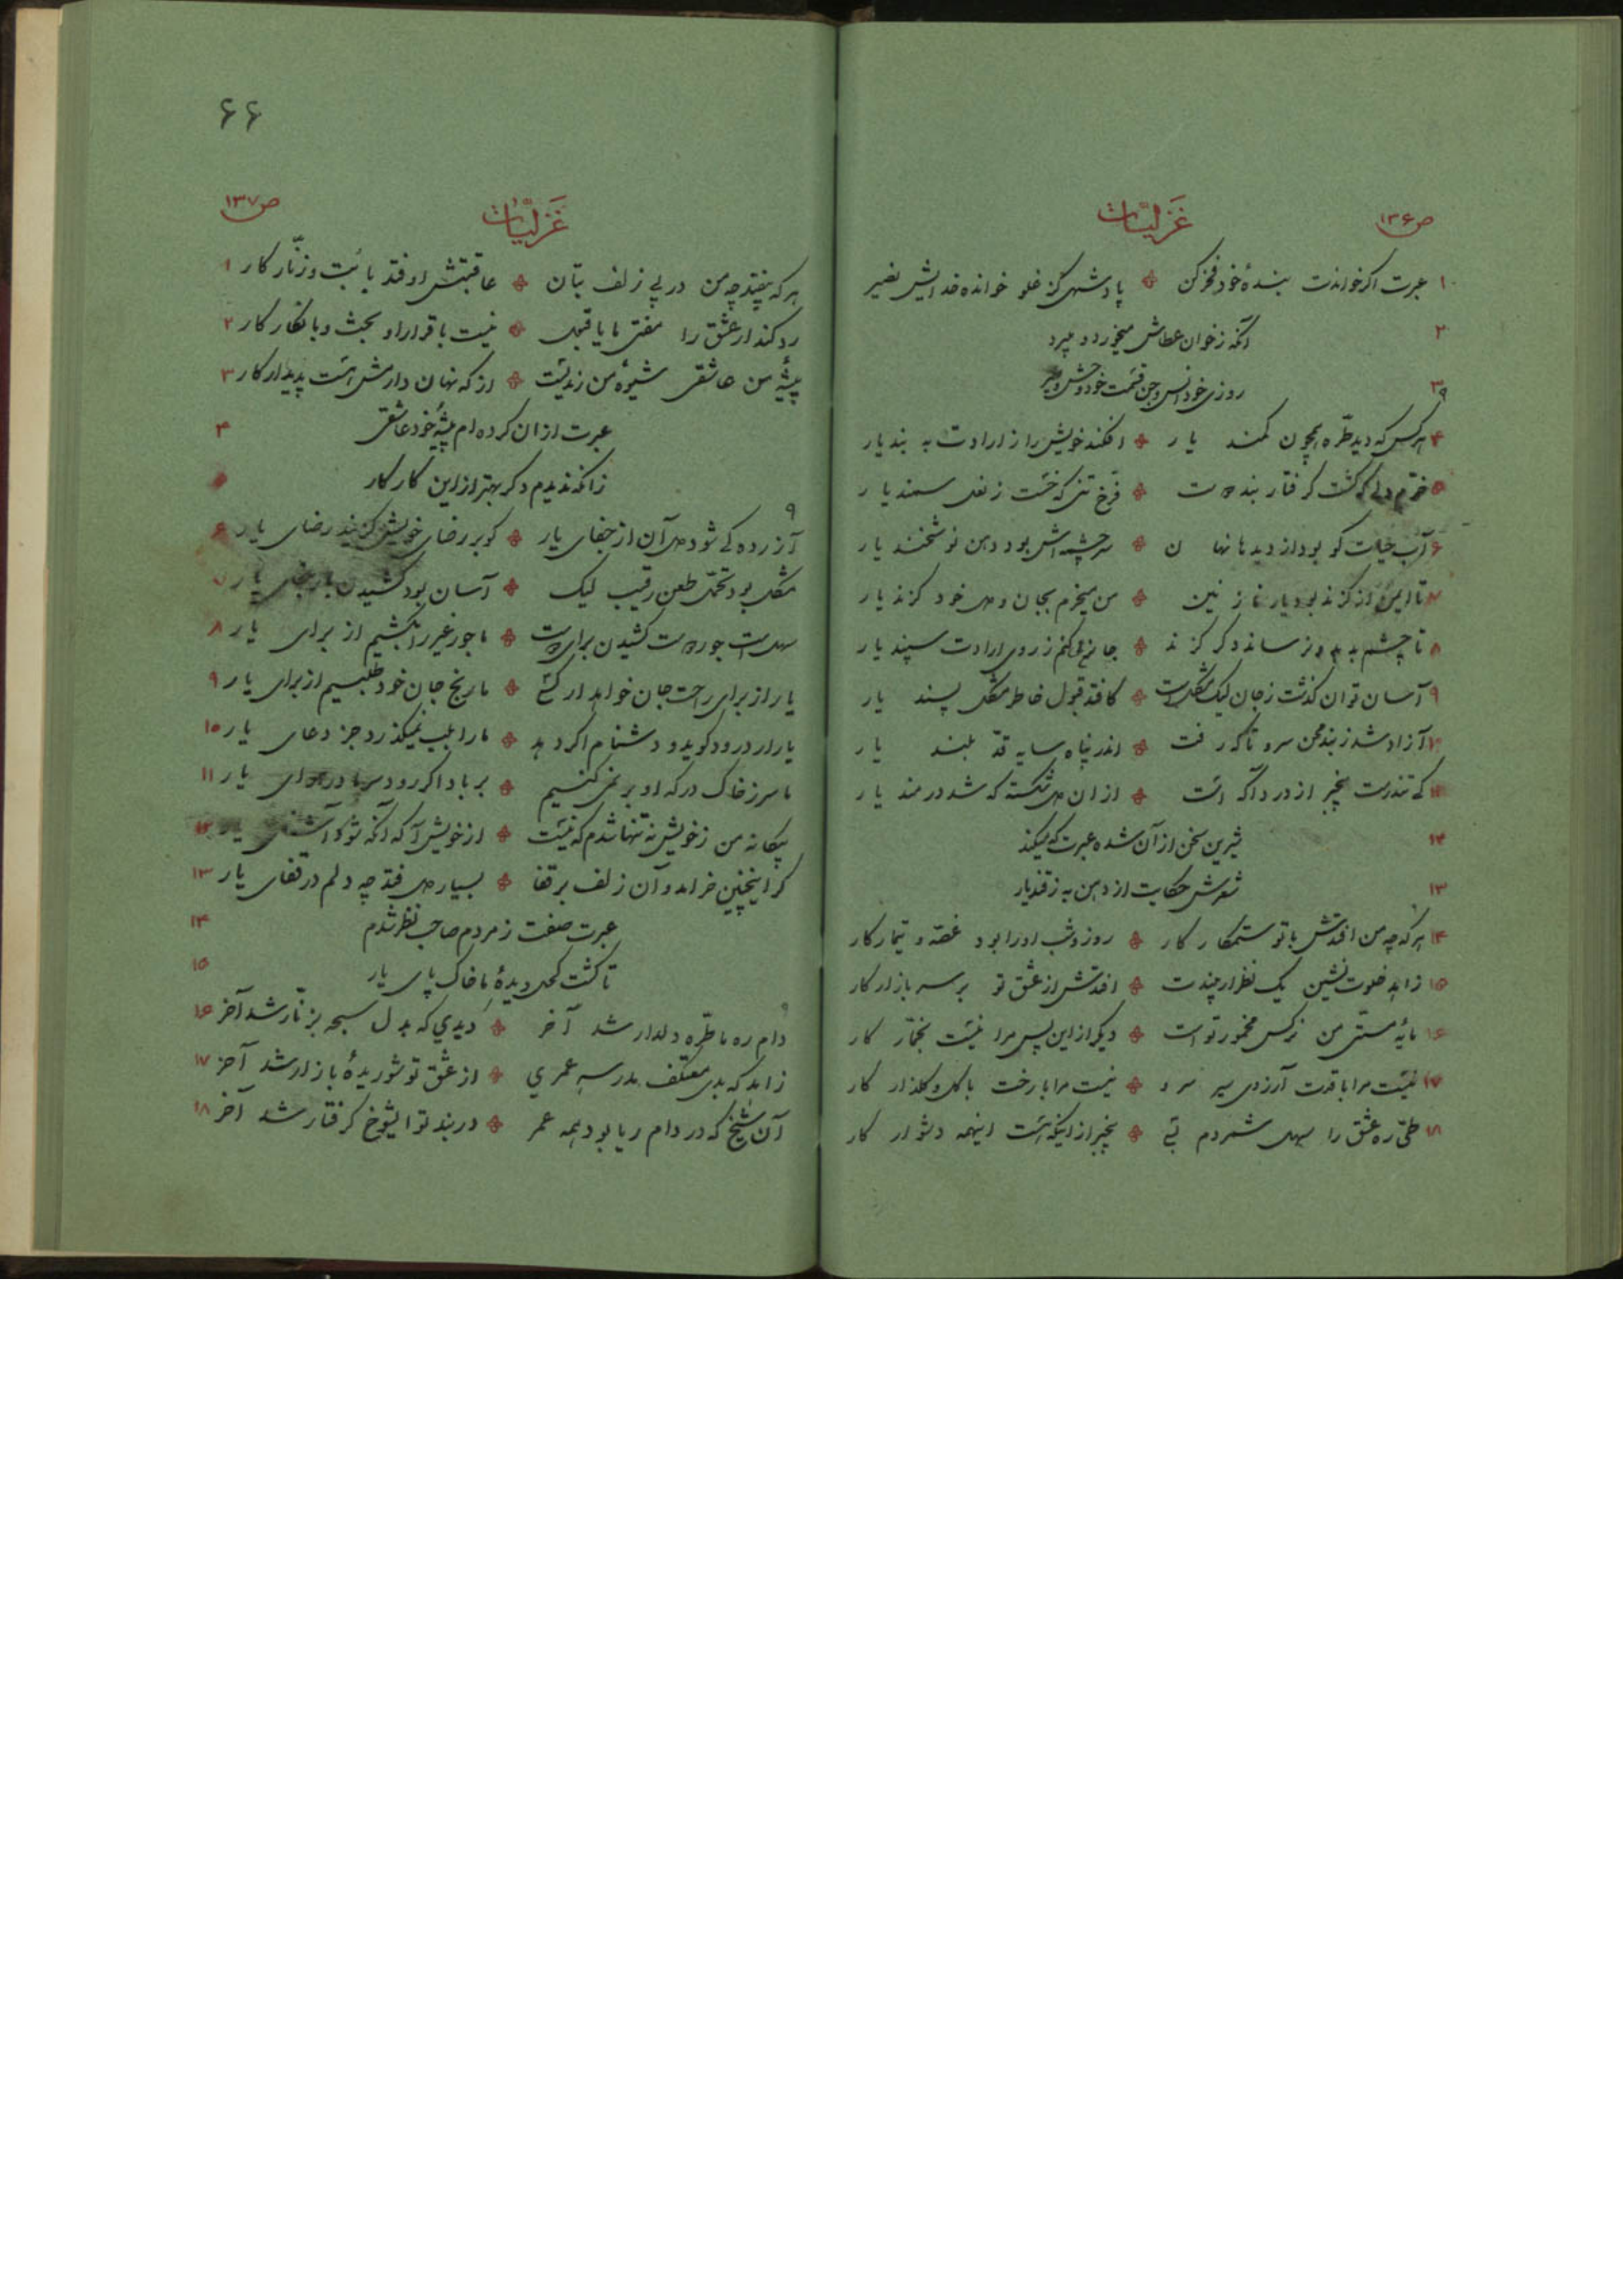 ص۱۳۶
غَزلیّات
۱ عبرت اکر خواندت بندهٔ خود فخر کن ❖ پادشهی کز غلو خوانده خدایش نصیر
۲ آنکه ز خوان عطاش میخورد و میبرد
۳ روزی خود انس و جن قسمت خود وحش و طیر
۹
۴ هر کس که دید طرّه همچون کمند یار ❖ افکند خویش را ز ارادت به بند یار
۵ خرّم دلی که کشت کرفتار بند دوست ❖ فرخ تنی که خست ز نعل سمند یار
۶ آب حیات کو بود از دیدها نهان ❖ سرچشمه اش بود دهن نوشخند یار
۷ تا ایمن از کزند بود یار نازنین ❖ من میخرم بجان و دل خود کزند یار
۸ تا چشم بد بدو نرساند دکر کزند ❖ جانرا کنم ز روی ارادت سپند یار
۹ آسان توان کذشت ز جان لیک مشکل است ❖ کافتد قبول خاطر مشکل پسند یار
۱۰ آزاد شد ز بند محن سرو تا که رفت ❖ اندر پناه سایه قدّ بلند یار
۱۱ کی تندرست بیخبر از درد آکه است ❖ از آن دل شکسته که شد دردمند یار
۱۲ شیرین سخن از آن شده عبرت که میکند
۱۳ شعرش حکایت از دهن به ز قند یار
۹
۱۴ هر که چه من افتدش با تو ستمکار کار ❖ روز و شب او را بود غصّه و تیمار کار
۱۵ زاهد خلوت نشین یک نظر ار بیندت ❖ افتدش از عشق تو بر سر بازار کار
۱۶ مایهٔ مستی من نرکس مخمور تو است ❖ دیکر از این پس مرا نیست بخمّار کار
۱۷ نیست مرا با قدت آرزوی سیر سرو ❖ نیست مرا با رخت با کل و کلذار کار
۱۸ طیّ ره عشق را سهل شمردم بسی ❖ بیخبر از اینکه هست اینهمه دشوار کار
۶۶
ص۱۳۷
غَزلیّات
هر که بیفتد چه من در پی زلف بتان ❖ عاقبتش اوفتد با بت و زنّار کار ۱
رد کند ار عشق را مفتی ما یا قبول ❖ نیست با قرار او بحث و بانکار کار ۲
پیشهٔ من عاشقی شیوهٔ من رندیست ❖ از که نهان دارمش هست پدیدار کار ۳
عبرت از آن کرده ام پیشهٔ خود عاشقی ۴
زانکه ندیدم دکر بهتر از این کار کار
۹
آزرده کی شود دل آن از جفای یار ❖ کو بر رضای خویش کزیند رضای یار ۶
مشکل بود تحمّل طعن رقیب لیک ❖ آسان بود کشیدن بار جفای یار
سهل است جور دوست کشیدن برای دوست ❖ ما جور غیر را بکشیم از برای یار ۸
یار از برای راحت جان خواهد ار کسی ❖ ما رنج جان خود طلبیم از برای یار ۹
یار ار درود کوید و دشنام اکر دهد ❖ ما را بلب نمیکذرد جز دعای یار ۱۰
ما سر ز خاک درکه او بر نمیکنیم ❖ بر باد اکر رود سر ما در هوای یار ۱۱
بیکانه من ز خویش نه تنها شدم که نیست ❖ از خویش آکه آنکه شود آشنای یار ۱۲
کر اینچنین خرامد و آن زلف بر قفا ❖ بسیار دل فتد چه دلم در قفای یار ۱۳
عبرت صفت ز مردم صاحب نظر شدم ۱۴
تا کشت کحل دیدهٔ ما خاک پای یار ۱۵
۹
دام ره ما طرّه دلدار شد آخر ❖ دیدی که بدل سبحه بزنّار شد آخر ۱۶
زاهد که بدی معتکف مدرسه عمری ❖ از عشق تو شوریدهٔ بازار شد آخر ۱۷
آن شیخ که در دام ریا بود همه عمر ❖ در بند تو ایشوخ کرفتار شد آخر ۱۸